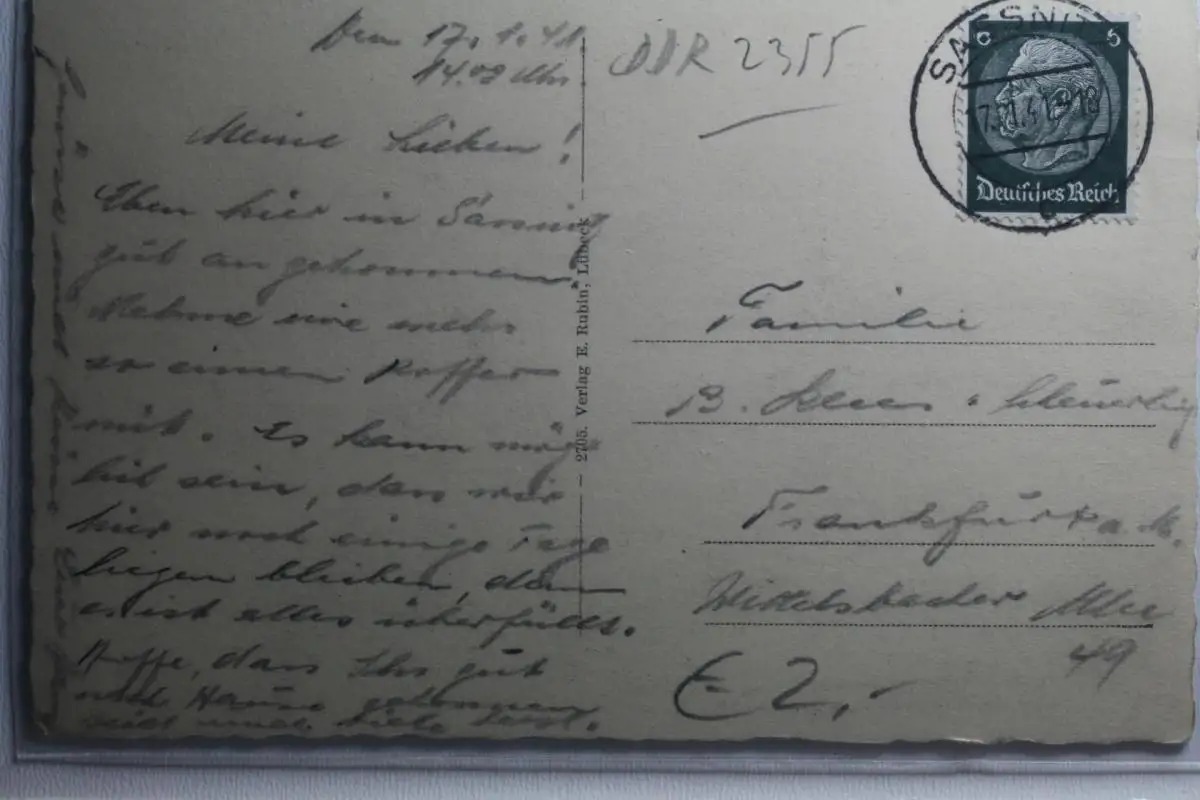 Den 17.1.41.
14.00 Uhr
Meine Lieben!
Eben hier in Sassnitz
gut angekommen.
Nehme nie mehr
so einen Koffer
mit. Es kann mög
lich sein, dass wir
hier noch einige Tage
liegen bleiben, denn
es ist alles überfüllt.
Hoffe, dass Ihr gut
nach Hause gekommen
seid und
2705. Verlag E. Rubin, Lübeck
DDR 2355
SASSNITZ
17.1.41.918
6 6
Deutsches Reich
Familie
B.
Frankfurt a. M.
Wittelsbacher Allee
49
€ 2,-